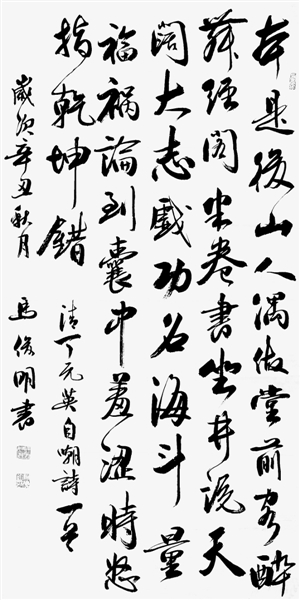 本是後山人偶做堂前客醉
舞經閣半卷書坐井説天
闊大志戲功名海斗量
福禍論到囊中羞澀時怒
指乾坤錯
清丁元英自嘲詩一首
歲次辛丑秋月 馬俊明書